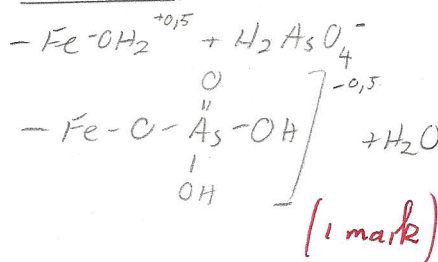 - Fe-OH₂⁺⁰,⁵ + H₂AsO₄⁻
O
- Fe - O - As - OH ]⁻⁰,⁵ + H₂O
OH
(1 mark)